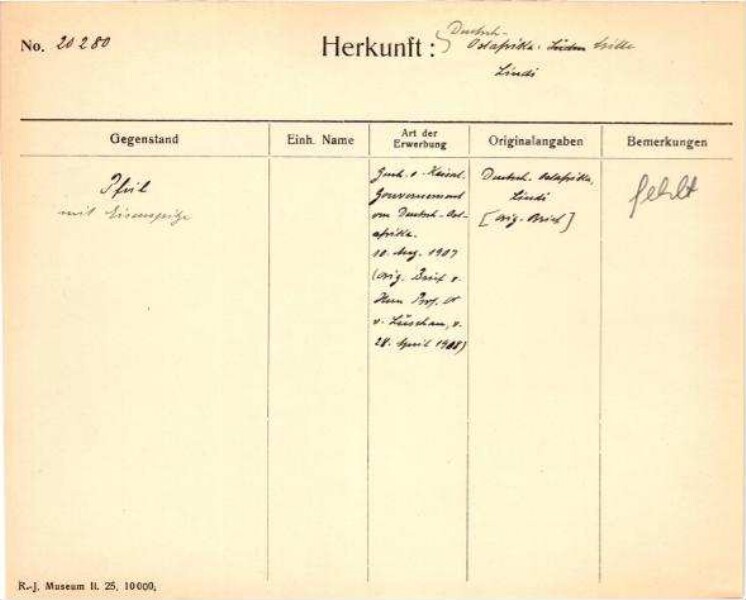 No. 20280
Herkunft: Deutsch-
Ostafrika. Süden
Lindi
Gegenstand Einh. Name Art der Erwerbung Originalangaben Bemerkungen
Pfeil
mit Eisenspitze
Gesch. v. Kaiserl.
Gouvernement
von Deutsch-Ost-
afrika.
10. Aug. 1907
(Orig. Brief v.
Herrn Prof. Dr
v. Luschan, v.
28. April 1908)
Deutsch. Ostafrika,
Lindi
[Orig. Brief]
fehlt
R.-J. Museum II. 25. 10000.